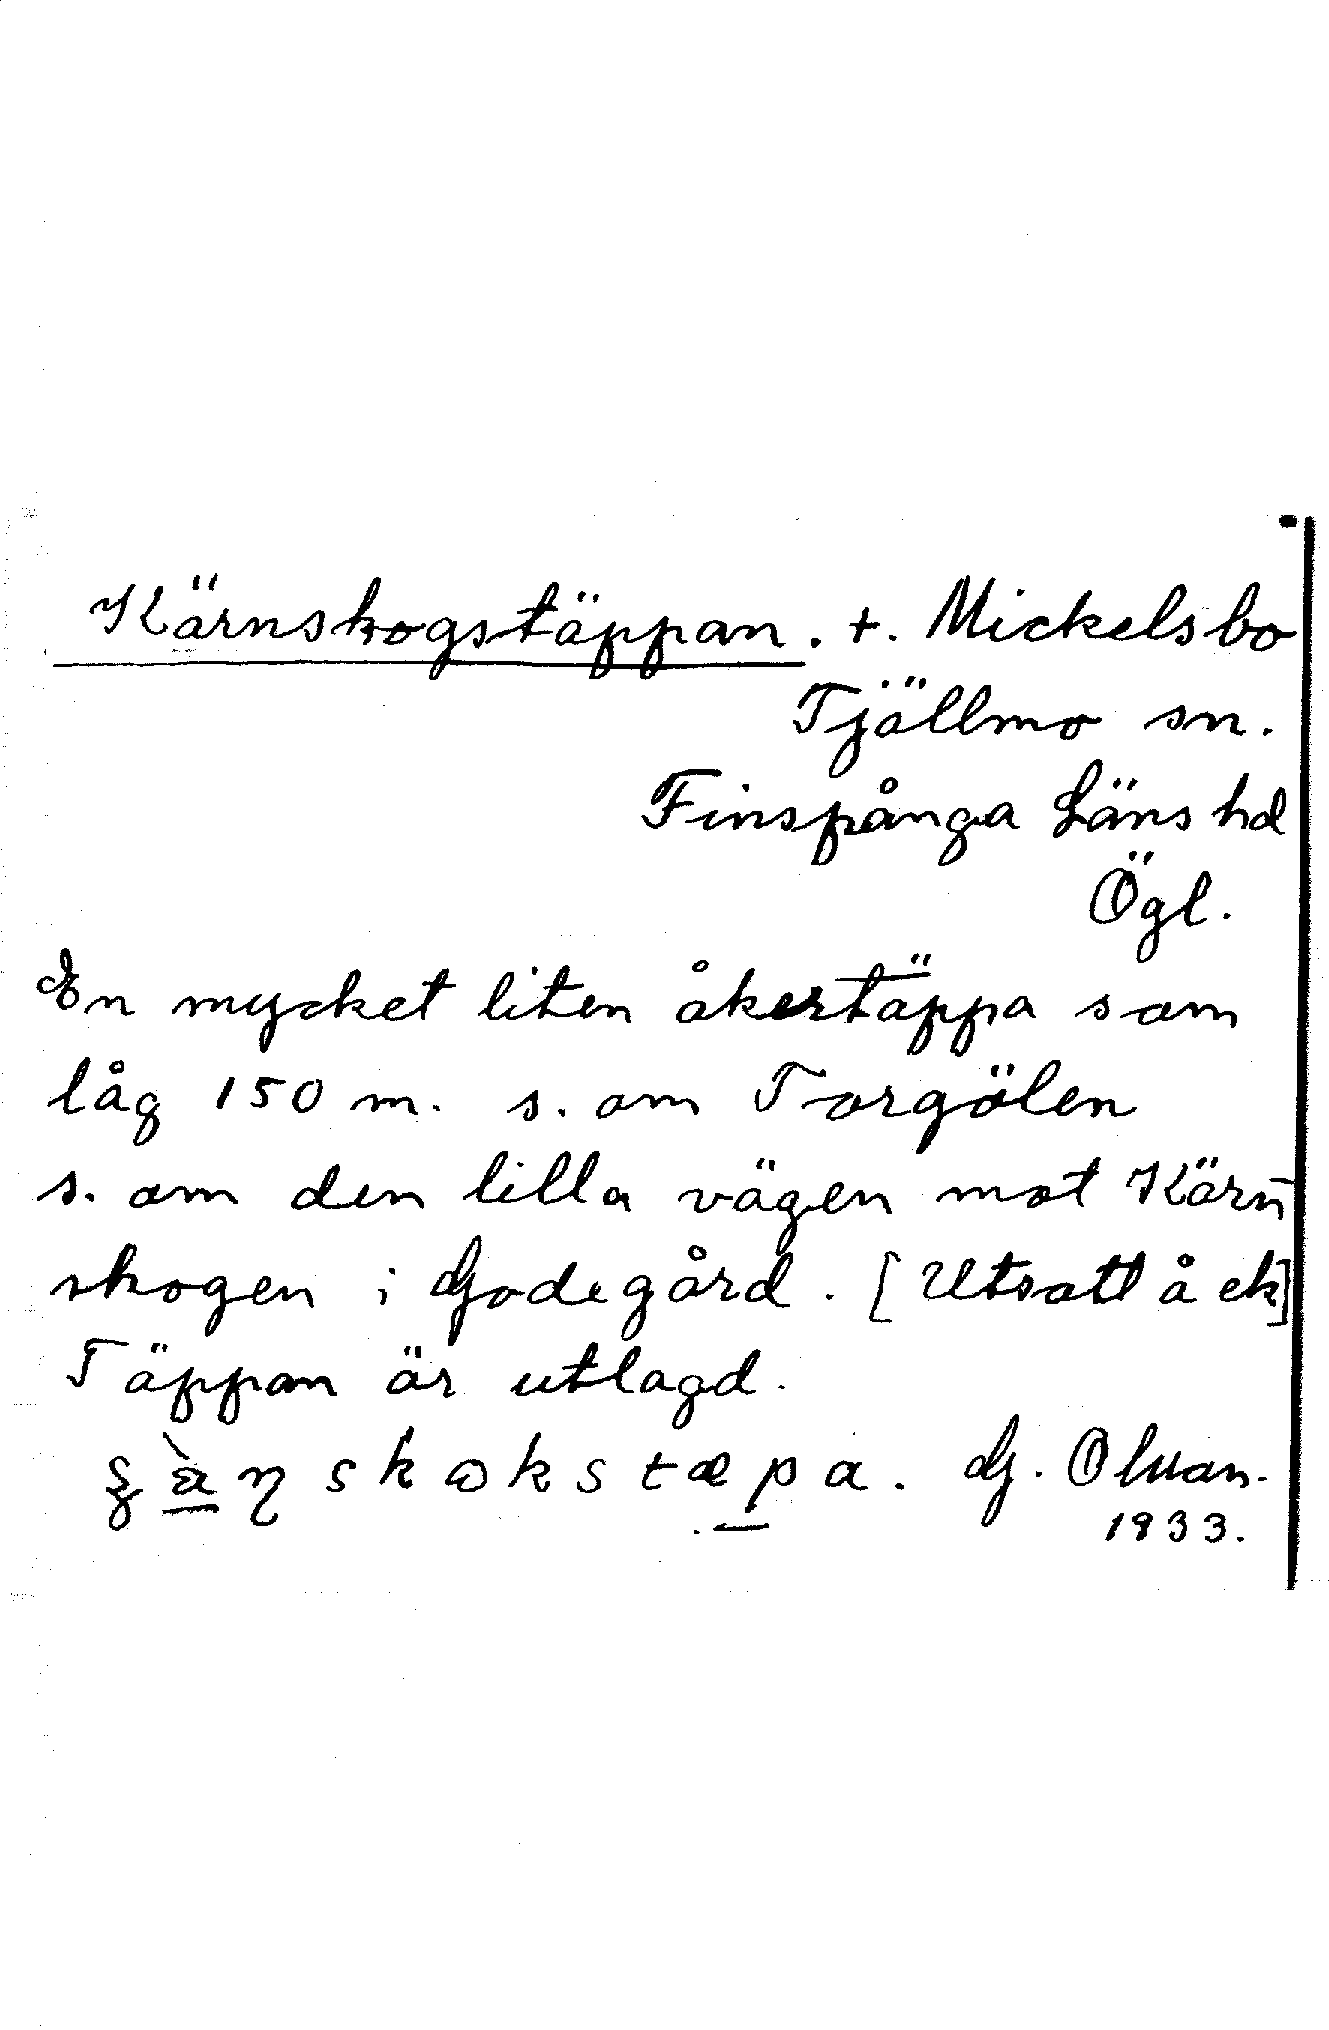 Kärnskogstäppan. +. Mickelsbo
Tjällmo sn.
Finspånga Läns hd
Ögl.
En mycket liten åkertäppa som
låg 150 m. s. om Torgölen
s. om den lilla vägen mot Kärn-
skogen i Godegård. [Utsatt å ek]
Täppan är utlagd.
G. Olman.
1933.